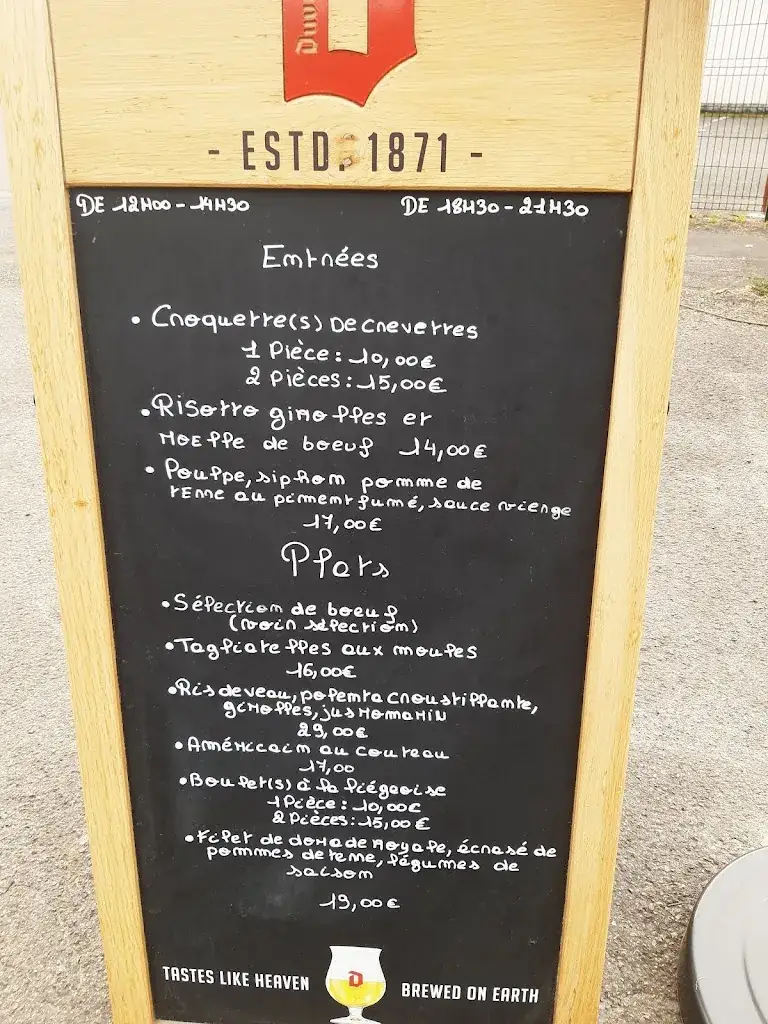 Duvel
- ESTD. 1871 -
DE 12H00 - 14H30 DE 18H30 - 21H30
Entrées
• Croquette(s) De crevettes
1 Pièce : 10,00€
2 Pièces : 15,00€
• Risotto girolles et
Moelle de boeuf 14,00€
• Poulpe, siphon pomme de
terre au piment fumé, sauce vierge
17,00€
Plats
• Sélection de boeuf
(voir sélection)
• Tagliatelles aux moules
16,00€
• Ris de veau, polenta croustillante,
girolles, jus romarin
29,00€
• Américain au couteau
17,00
• Boulet(s) à la liégeoise
1 Pièce : 10,00€
2 Pièces : 15,00€
• Filet de dorade royale, écrasé de
pommes de terre, légumes de
saison
19,00€
TASTES LIKE HEAVEN D BREWED ON EARTH